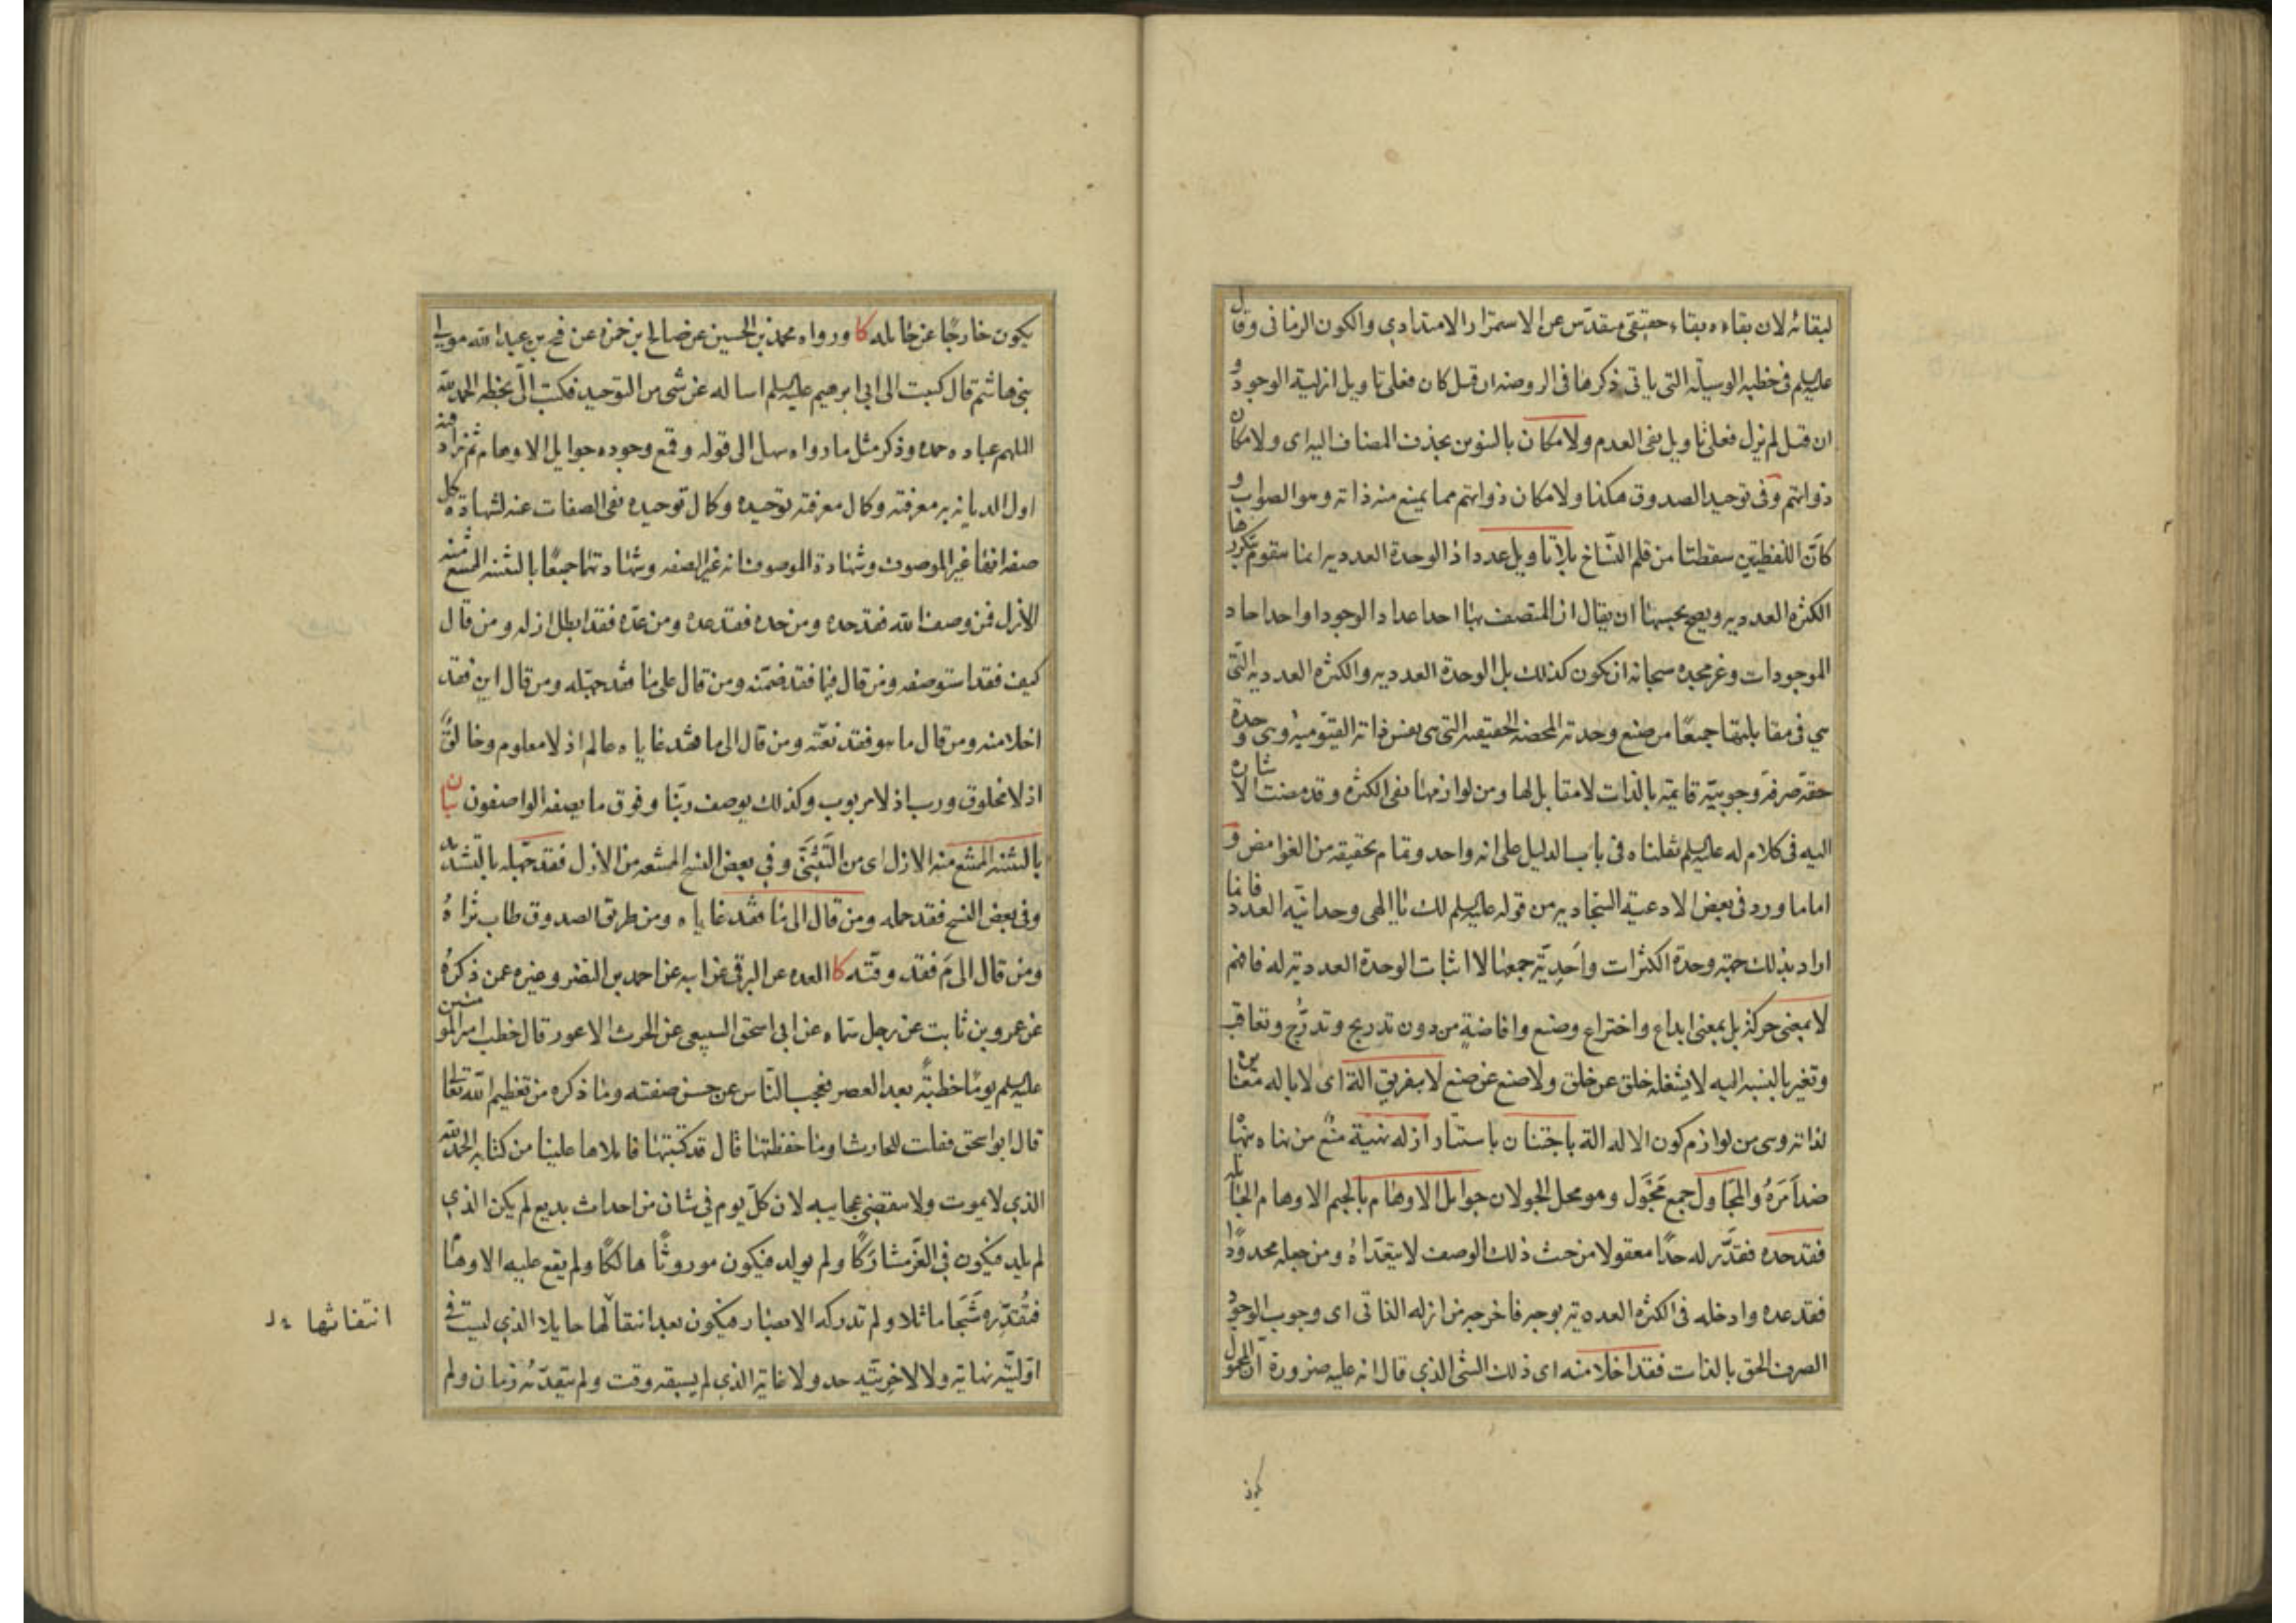 لبقائه لان بقاءه بقاء حقيقى متقدّس عن الاستمرار الامتدادي والكون الزمانى وقال
عليه السلم فى خطبه الوسيلة التى ياتى ذكرها فى الروضه ان قيل كان فعلى تاويل ازلية الوجود و
ان قيل لم يزل فعلى تاويل نفى العدم ولا مكان بالتنوين بحذف المضاف اليه اى ولا مكان
ذواتهم وفى توحيد الصدوق هكذا ولا مكان ذواتهم مما يمتنع منه ذاته وهو الصواب و
كانّ اللفظتين سقطتا من قلم النسّاخ بلا تاويل عدد اذ الوحدة العدديه انما يتقوم بتكررها
الكثره العدديه ويصح بحسبها ان يقال ان المتصف بها احد اعداد الوجود او احد احاد
الموجودات وعز مجده سبحانه ان يكون كذلك بل الوحدة العدديه والكثره العدديه التى
هي فى مقابلتها جميعًا من صنع وحدته المحضه الحقيقيه التى هى نفس ذاته القيّوميه وهى وحدة
حقّه صرفه وجوبيّه قايمة بالذات لا مقابل لها ومن لوازمها نفى الكثره وقد مضت الاشارة
اليه فى كلام له عليه السلم نقلناه فى باب الدليل على انه واحد وتمام تحقيقه من الغوامض و
اما ما ورد فى بعض الادعية السّجاديه من قوله عليه السلم لك يا الهى وحدانيّه العدد فانما
اراد بذلك جهة وحدة الكثرات وأَحَدِيّة جمعها لا اثبات الوحدة العدديّة له فافهم
لا بمعنى حركة بل بمعنى ابداع واختراع وصنع وافاضةٍ من دون تدريج وتدرُّج وتعاقب
وتغير بالنسبه اليه لا يشغله خلق عن خلق ولا صنع عن صنع لا بتفريق الة اى لا باله مغايره
لذاته وهى من لوازم كون الاله الة باجتنان باستتار ازله نهية منع من نهاه ينهاه
ضد اَمَرَهُ والمجاول جمع مَجْوَل وهو محل الجولان جوايل الاوهام بالجيم الاوهام الجايله
فقد حده فقدَّر له حدًّا معقولا من حيث ذلك الوصف لا يتعدّاهُ ومن جعله محدودًا
فقد عده وادخله فى الكثره العدديّه بوجه فاخرجه من ازله الذاتى اى وجوب الوجود
الصرف الحق بالذات فقد اخلا منه اى ذلك الشى الذي قال انه عليه ضرورة ان المحمول
يكون
يكون خارجًا عن حامله كا ورواه محمد بن الحسين عن صالح بن حمزه عن فتح بن عبد الله مولى
بنى هاشم قال كتبت الى ابى ابرهيم عليه السلم اساله عن شى من التوحيد فكتب الىّ بخطه الحمد لله
الملهم عباده حمده وذكر مثل ما رواه سهل الى قوله وقمع وجوده جوايل الاوهام ثم زاد فيه
اول الديانه به معرفته وكمال معرفته توحيده وكمال توحيده نفى الصفات عنه لشهادة كل
صفه انها غير الموصوف وشهادة الموصوف انه غير الصفه وشهادتهما جميعًا بالتثنيه الممتنع منه
الازل فمن وصف الله فقد حده ومن حده فقد عده ومن عدّه فقد ابطل ازله ومن قال
كيف فقد استوصفه ومن قال فيما فقد ضمّنه ومن قال على ما فقد جهّله ومن قال اين فقد
اخلا منه ومن قال ما هو فقد نعته ومن قال الى ما فقد غاياه عالم اذ لا معلوم وخالق
اذ لا مخلوق ورب اذ لا مربوب وكذلك يوصف ربّنا وفوق ما يصفه الواصفون بيان
بالتثنيه الممتنع منه الازل اى من التَّثَنّى وفى بعض النسخ الممتنعه من الازل فقد جهّله بالتشديد
وفى بعض النسخ فقد حمله ومن قال الى ما فقد غاياه ومن طريق الصدوق طاب ثراهُ
ومن قال الى مَ فقد وقّته كا العده عن البرقى عن ابيه عن احمد بن النضر وغيره عمن ذكرهُ
عن عمرو بن ثابت عن رجل سماه عن ابى اسحق السبيعى عن الحرث الاعور قال خطب امير المؤمنين
عليه السلم يومًا خطبةً بعد العصر فعجب النّاس من حسن صفته وما ذكره من تعظيم الله تعالى
قال ابو اسحق فقلت للحارث او ما حفظتها قال قد كتبتها فاملاها علينا من كتابه الحمد لله
الذي لا يموت ولا ينقضى عجايبه لان كلّ يوم فى شان من احداث بديع لم يكن الذى
لم يلد فيكون فى العزّ مشارَكًا ولم يولد فيكون موروثًا هالكًا ولم يقع عليه الاوهام
فتُقدِّره شَبَحا ماثلا ولم تدركه الابصار فيكون بعد انتقالها حايلا الذي ليست فى
اوّليّته نهاية ولا لاخريّته حد ولا غاية الذي لم يسبقه وقت ولم يتقدّمه زمان ولم